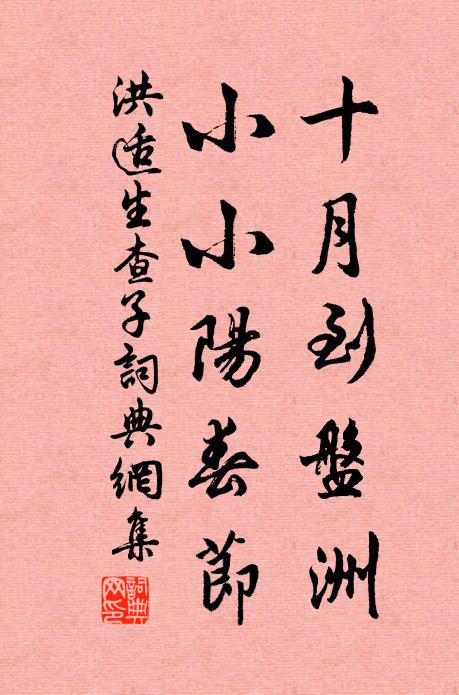 十月到盤洲
小小陽春節
洪适生查子詞典網集
詞典網印